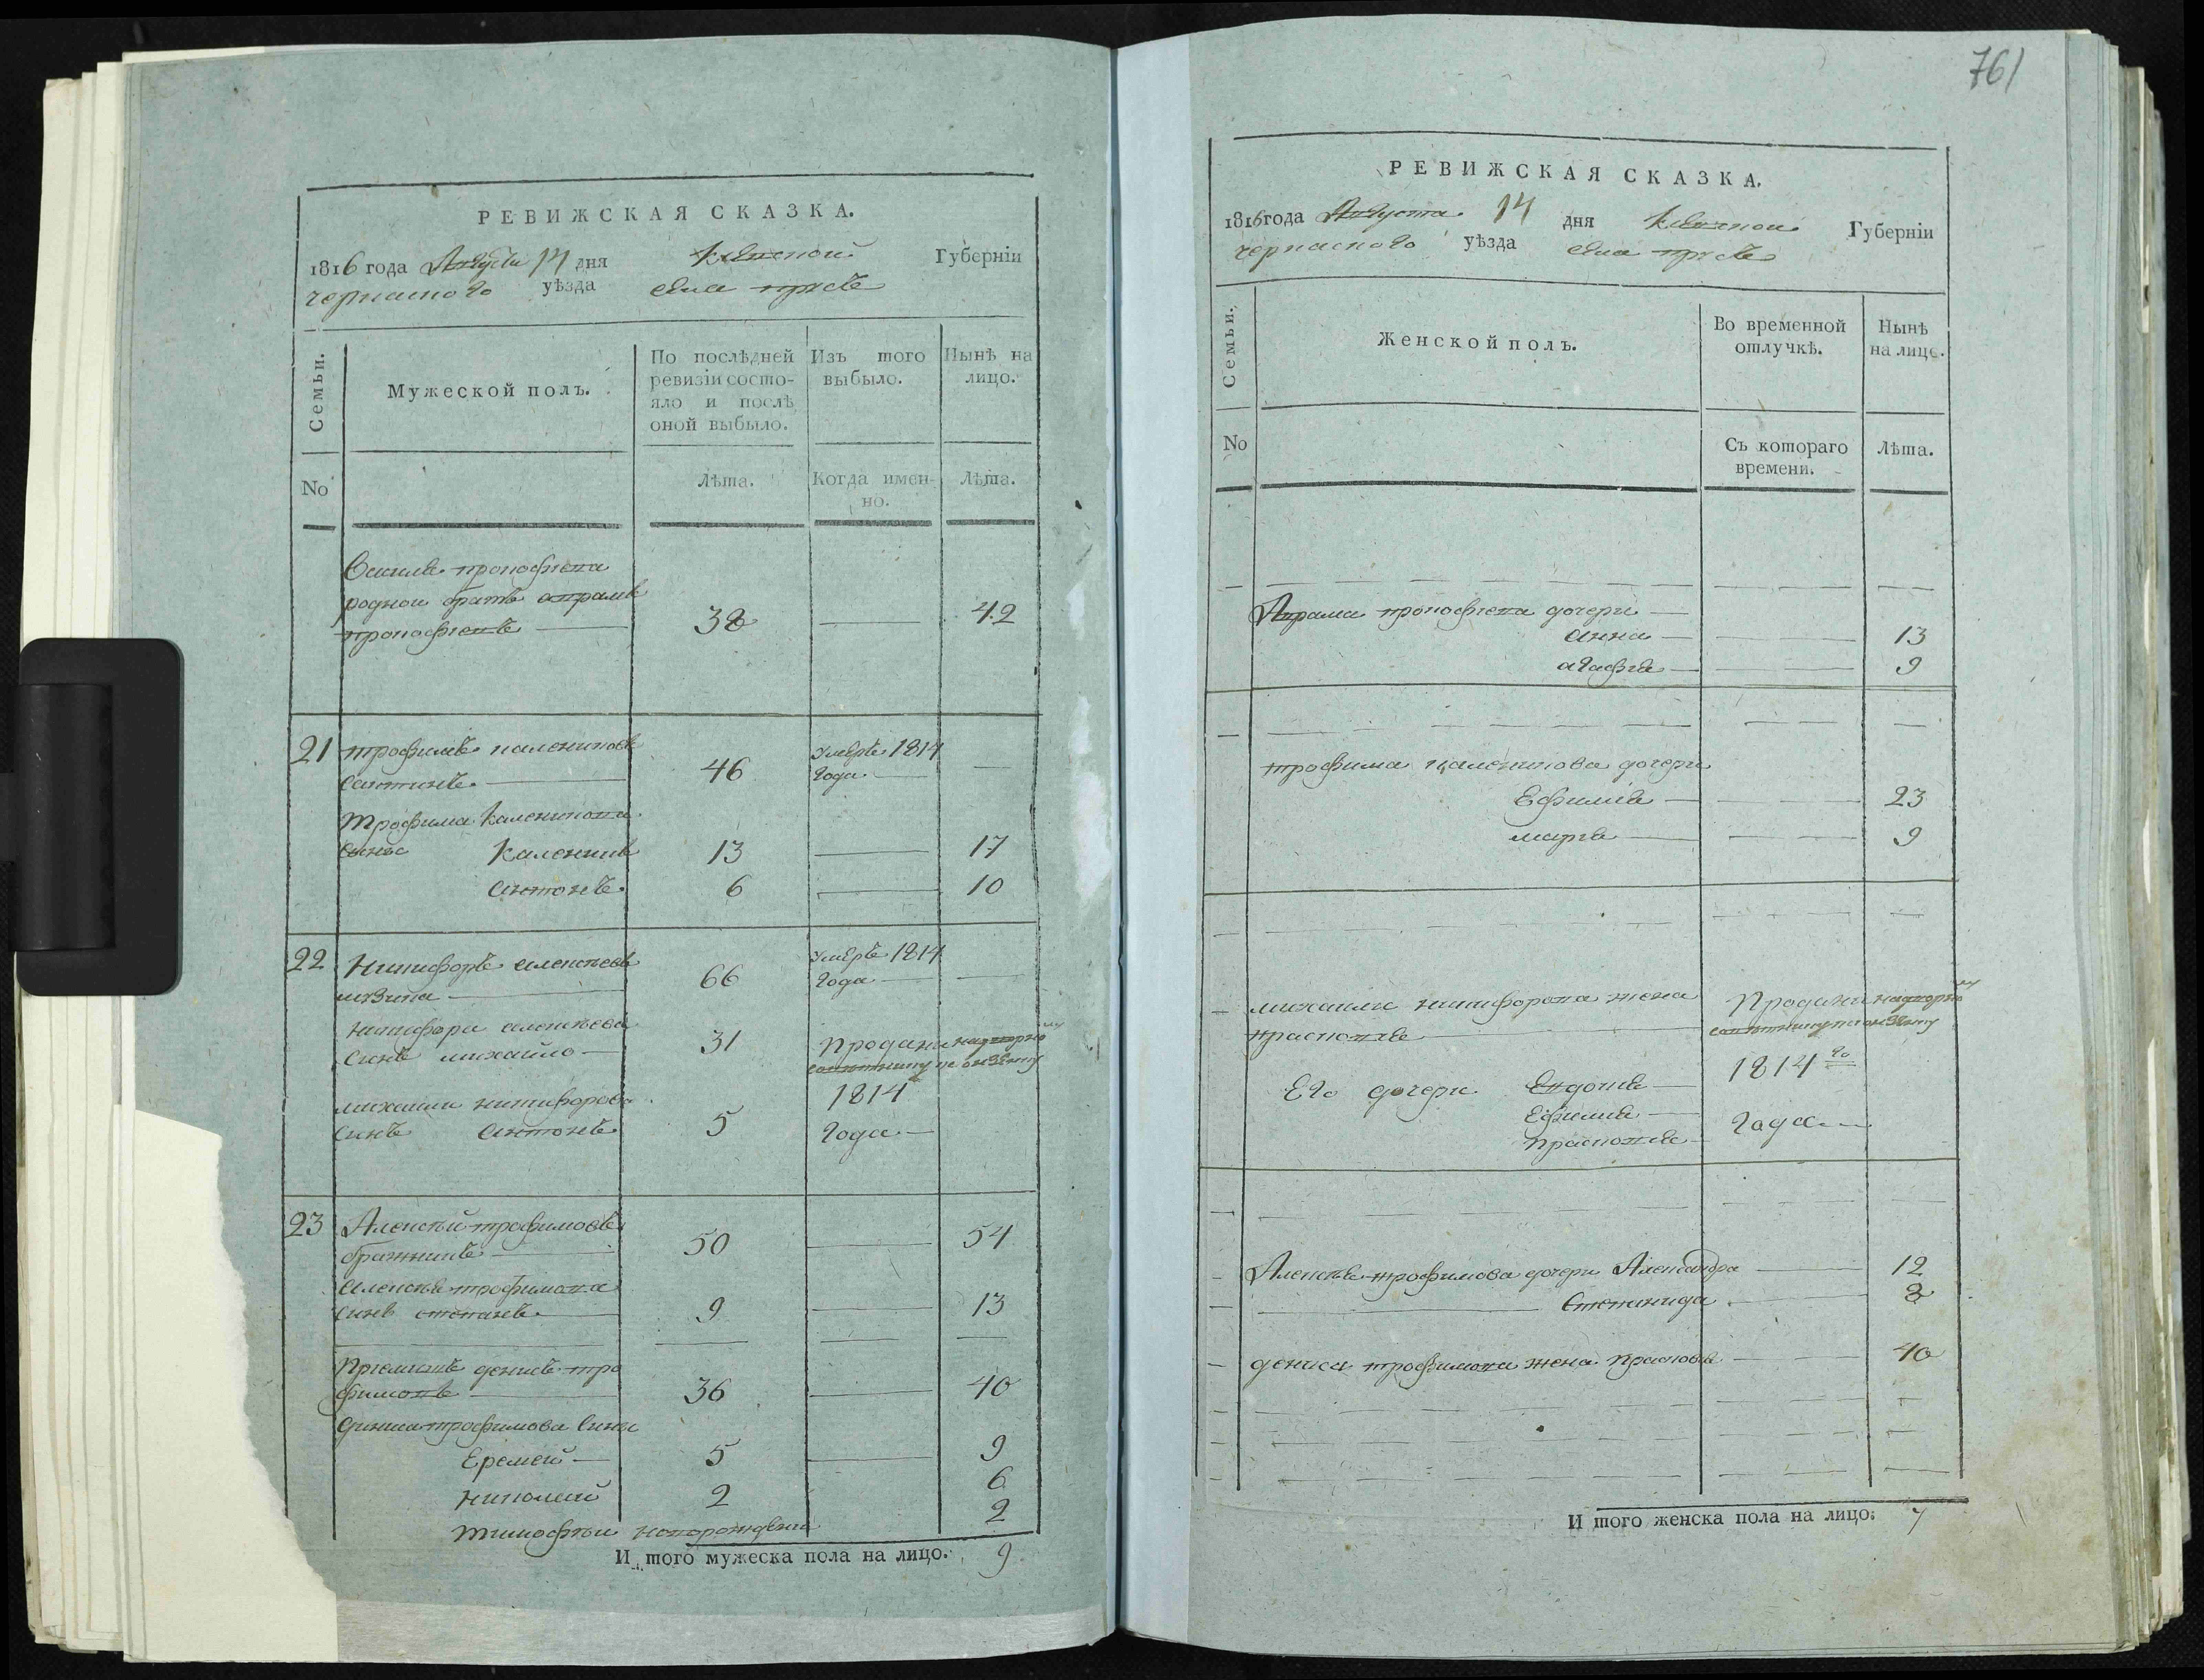 РЕВИЖСКАЯ СКАЗКА.
1816 года Августа 14 дня Киевской Губерніи
черкаского уѣзда села
Семьи.
Мужеской полъ.
По послѣдней ревизіи состо-
яло и послѣ
оной выбыло.
Изъ того
выбыло.
Нынѣ на
лицо.
No
Лѣта.
Когда имен-
но.
Лѣта.
Василя прокофиева
родной братъ авраамъ
прокофиевъ 38 42
21 трофимъ калениковъ 46 умеръ 1814
года
Трофима каленикова
сыны Каленикъ 13 17
антонъ 6 10
22 Никифоръ алексѣевъ 66 умеръ 1814
года
никифора алексѣева
синъ михайло 31 Проданы
1814
михаили никифорова
синъ антонъ 5 года
23 Алексѣй трофимовъ 50 54
бражникъ
алексѣя трофимова
синъ степанъ 9 13
Приемишъ денисъ тро
фимовъ 36 40
дениса трофимова сины
Еремей 5 9
николай 2 6
тимофѣи новорожденни 2
И того мужеска пола на лицо. 9
761
РЕВИЖСКАЯ СКАЗКА.
1816 года Августа 14 дня Киевской Губерніи
черкаского уѣзда села
Семьи.
Женской полъ.
Во временной
отлучкѣ.
Нынѣ
на лице.
No
Съ котораго
времени.
Лѣта.
прокофиева дочери
анна 13
агафия 9
трофима каленикова дочери
Ефимия 23
мария 9
михаили никифорова жена Проданы
прасковия
Его дочери Евдокия 1814 го
Ефимия
прасковия года
Алексѣя трофимова дочери Александра 12
Степанида 8
дениса трофимова жена прасковья 40
И того женска пола на лицо. 7